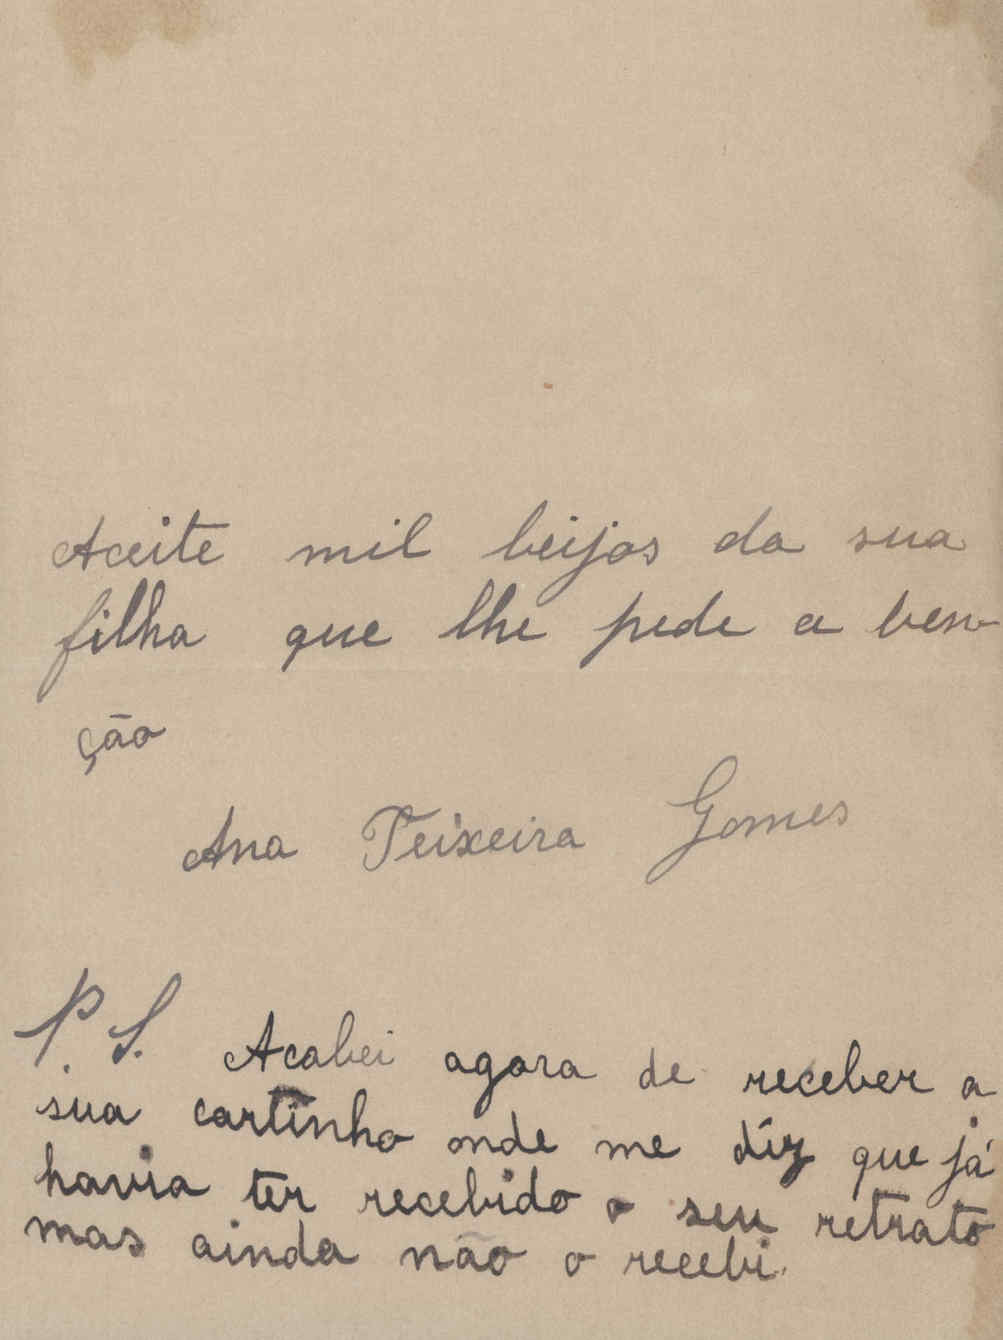 Aceite mil beijos da sua
filha que lhe pede a ben-
ção
Ana Teixeira Gomes
P. S. Acabei agora de receber a
sua cartinha onde me diz que já
havia ter recebido o seu retrato
mas ainda não o recebi.